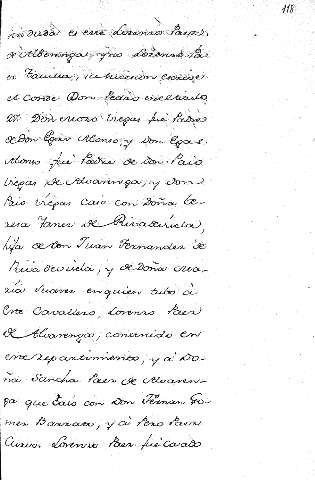 118
sin duda es este Lorenzo Paez
de Alvarenga, cuio
es Familia, su succesion escrive
el Conde Don Pedro en el titulo
Don Viegas fue Padre
de Don Egas Alonso, y Don Egas
Alonso fue Padre de Don Paio
Viegas de Alvarenga, y Don
Paio Viegas Casó con Doña Te-
resa Yanes de Rivadevicela,
hija de Don Juan Fernandez de
Rivadevicela, y de Doña Ma-
ria Suarez en quien tubo á
este Cavallero, Lorenzo Paez
de Alvarenga, contenido en
este repartimiento, y á Do-
ña Sancha Paez de Alvaren-
ga que Casó con Don Fernan Go-
mez Barroso, y á Pero Paez
Curvo. Lorenzo Paez fue Casado